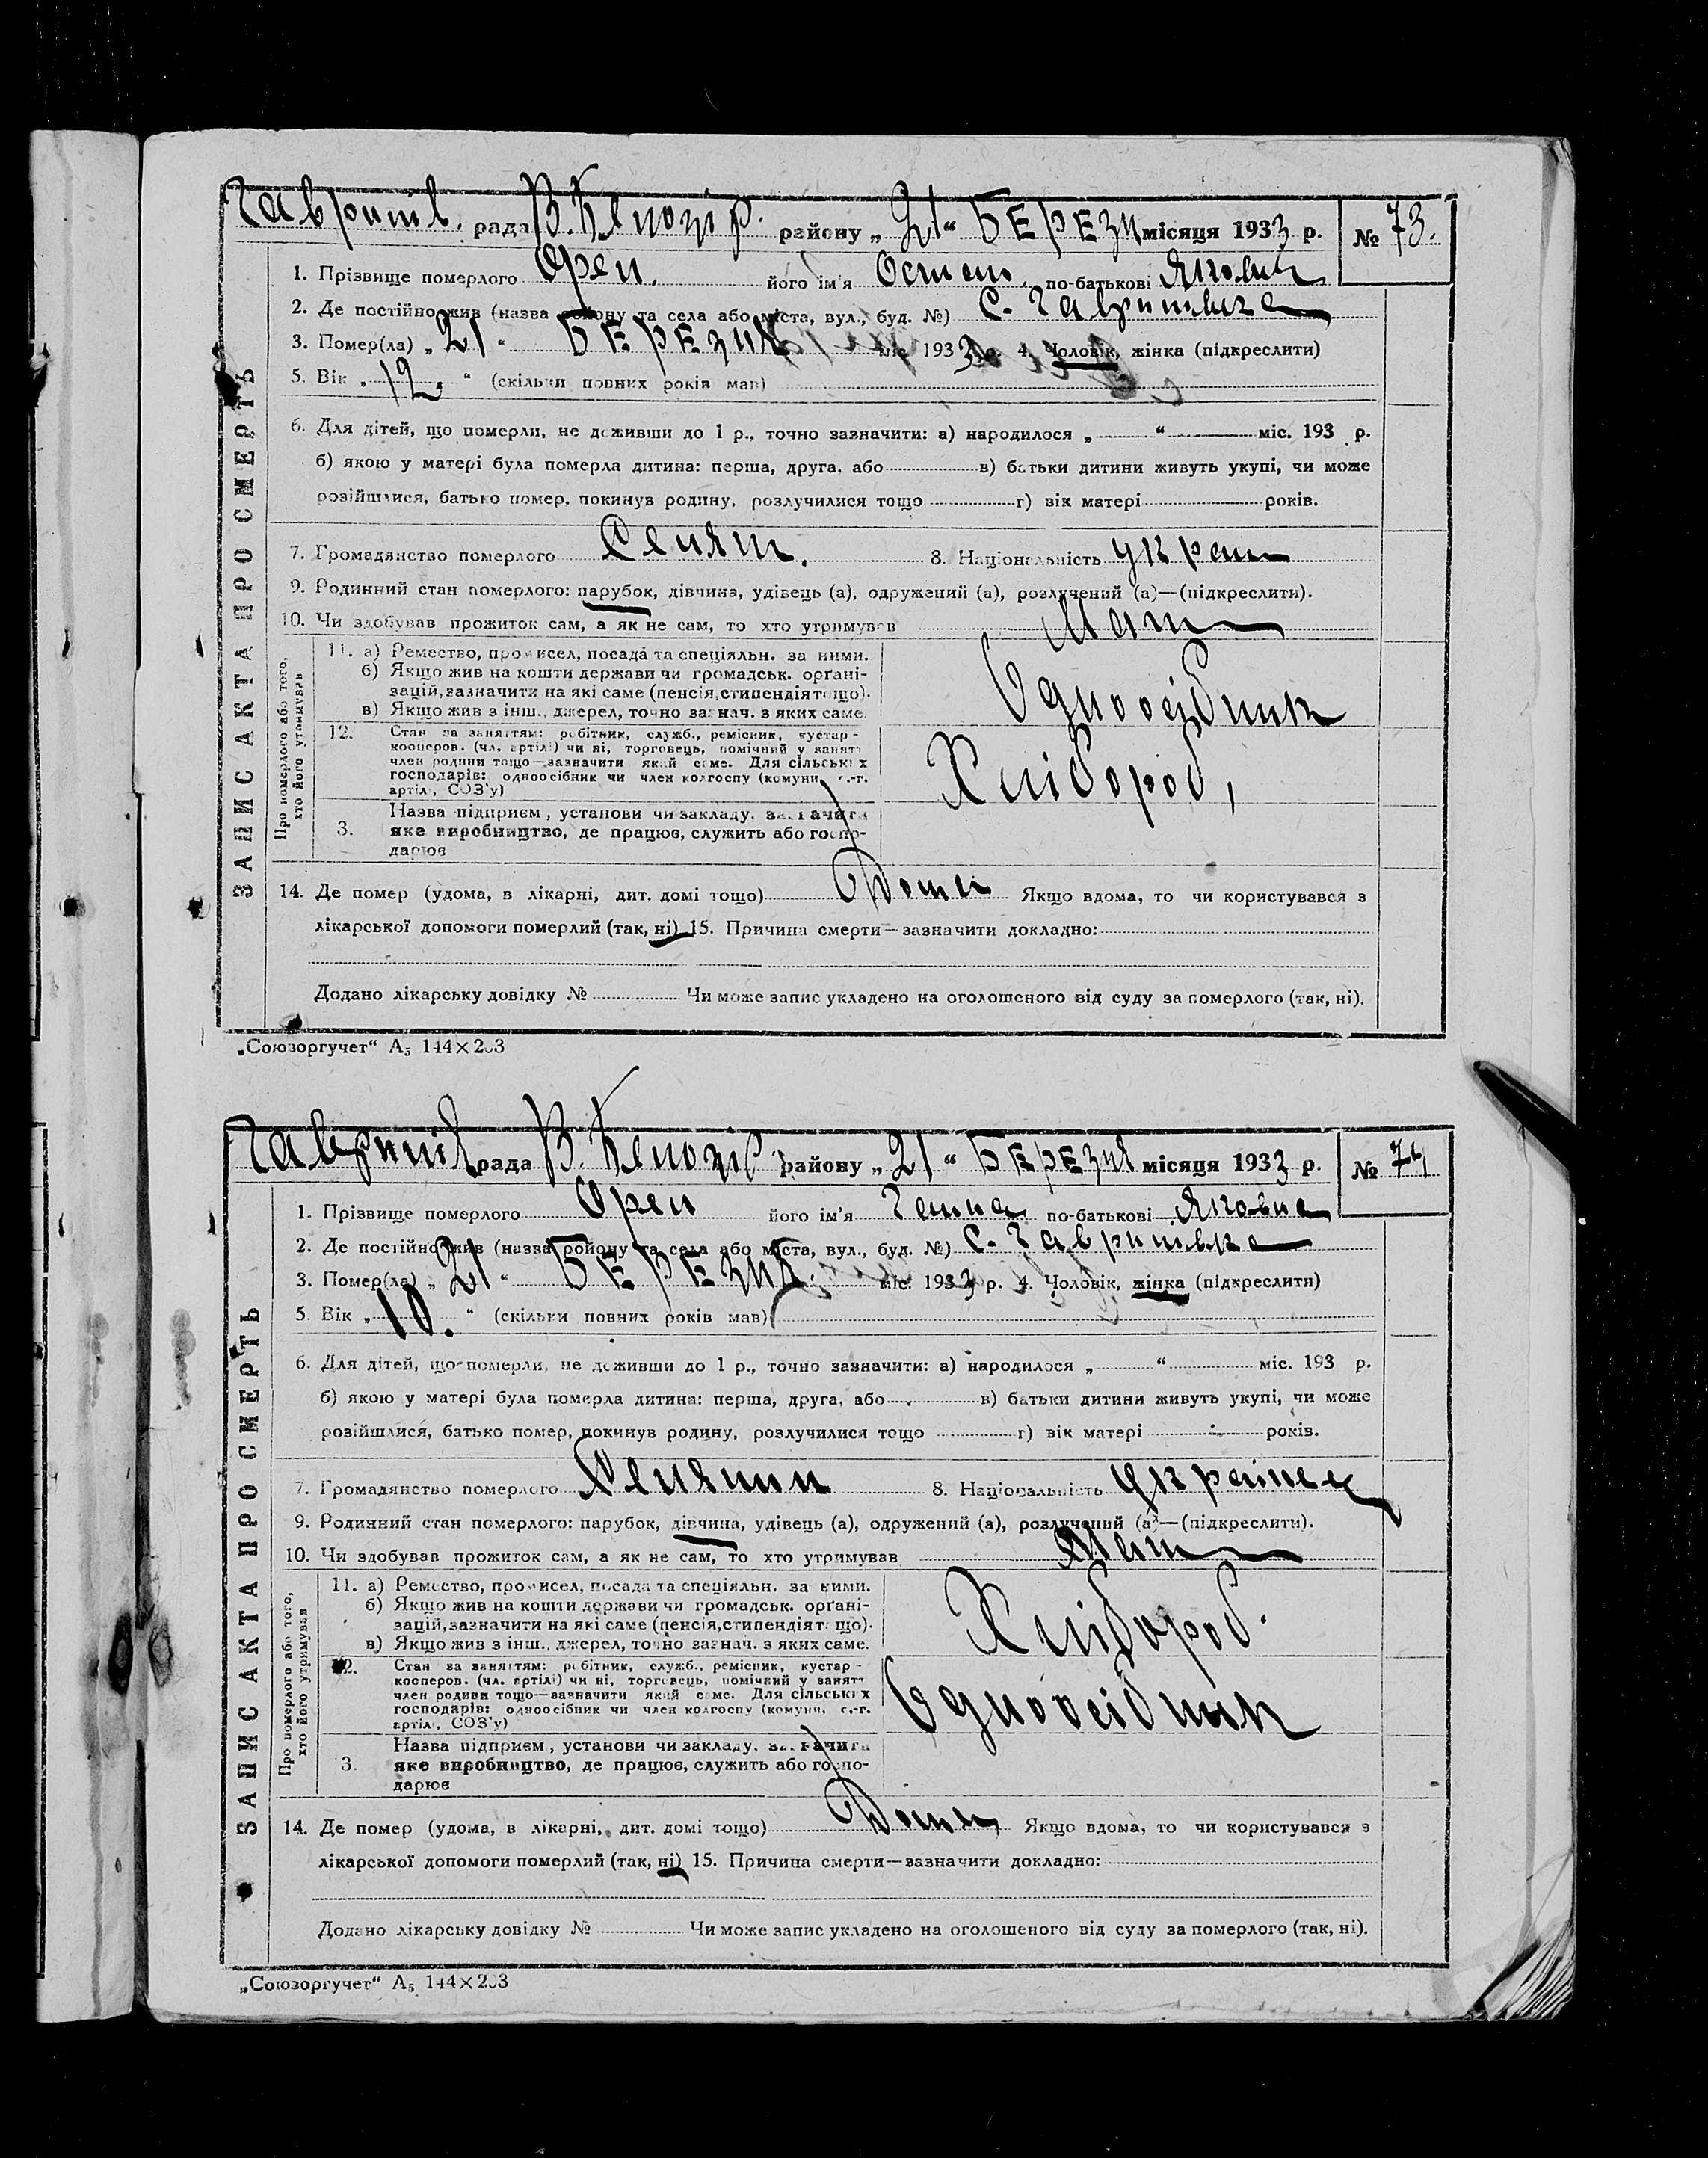 Гавришів. рада В. Білозір. району „21“ БЕРЕЗН місяця 1933 р. № 73.
1. Прізвище померлого Орел. його ім'я Остап. по-батькові Якович
2. Де постійно жив (назва району та села або міста, вул., буд. №) С. Гавришівка
3. Помер(ла) „21“ БЕРЕЗНЯ міс. 1933 р. 4. Чоловік, жінка (підкреслити)
5. Вік „12.“ (скільки повних років мав)
6. Для дітей, що померли, не доживши до 1 р., точно зазначити: а) народилося „ “ міс. 193 р.
б) якою у матері була померла дитина: перша, друга, або в) батьки дитини живуть укупі, чи може
розійшлися, батько помер, покинув родину, розлучилися тощо г) вік матері років.
7. Громадянство померлого Селян. 8. Національність Україн
9. Родинний стан померлого: парубок, дівчина, удівець (а), одружений (а), розлучений (а)—(підкреслити).
10. Чи здобував прожиток сам, а як не сам, то хто утримував Мати
ЗАПИС АКТА ПРО СМЕРТЬ
Про померлого або того,
хто його утримував
11. а) Ремество, промисел, посада та спеціяльн. за ними.
б) Якщо жив на кошти держави чи громадськ. орґані-
зацій, зазначити на які саме (пенсія, стипендія тощо).
в) Якщо жив з інш., джерел, точно зазнач. з яких саме.
Одноосібник
12. Стан за заняттям: робітник, служб., ремісник, кустар-
кооперов. (чл. артілі) чи ні, торговець, помічний у занятт
член родини тощо—зазначити який саме. Для сільських
господарів: одноосібник чи член колгоспу (комуни, с.-г.
артілі, СОЗ'у)
Хлібороб,
3. Назва підприєм, установи чи закладу, зазначити
яке виробництво, де працює, служить або госпо-
дарює
14. Де помер (удома, в лікарні, дит. домі тощо) Дома Якщо вдома, то чи користувався з
лікарської допомоги померлий (так, ні) 15. Причина смерти—зазначити докладно:
Додано лікарську довідку № Чи може запис укладено на оголошеного від суду за померлого (так, ні).
„Союзоргучет“ А₅ 144×203
Гавришів рада В. Білозір. району „21“ БЕРЕЗНЯ місяця 1933 р. № 74
1. Прізвище померлого Орел його ім'я Ганна по-батькові Яковна
2. Де постійно жив (назва району та села або міста, вул., буд. №) С. Гавришівка
3. Помер(ла) „21“ БЕРЕЗНЯ. міс. 1933 р. 4. Чоловік, жінка (підкреслити)
5. Вік „10.“ (скільки повних років мав)
6. Для дітей, що померли, не доживши до 1 р., точно зазначити: а) народилося „ “ міс. 193 р.
б) якою у матері була померла дитина: перша, друга, або в) батьки дитини живуть укупі, чи може
розійшлися, батько помер, покинув родину, розлучилися тощо г) вік матері років.
7. Громадянство померлого 8. Національність Українка
9. Родинний стан померлого: парубок, дівчина, удівець (а), одружений (а), розлучений (а)—(підкреслити).
10. Чи здобував прожиток сам, а як не сам, то хто утримував Мати
ЗАПИС АКТА ПРО СМЕРТЬ
Про померлого або того,
хто його утримував
11. а) Ремество, промисел, посада та спеціяльн. за ними.
б) Якщо жив на кошти держави чи громадськ. орґані-
зацій, зазначити на які саме (пенсія, стипендія тощо).
в) Якщо жив з інш., джерел, точно зазнач. з яких саме.
Хлібороб.
12. Стан за заняттям: робітник, служб., ремісник, кустар-
кооперов. (чл. артілі) чи ні, торговець, помічний у занятт
член родини тощо—зазначити який саме. Для сільських
господарів: одноосібник чи член колгоспу (комуни, с.-г.
артілі, СОЗ'у)
Одноосібник
3. Назва підприєм, установи чи закладу, зазначити
яке виробництво, де працює, служить або госпо-
дарює
14. Де помер (удома, в лікарні, дит. домі тощо) Дома Якщо вдома, то чи користувався з
лікарської допомоги померлий (так, ні) 15. Причина смерти—зазначити докладно:
Додано лікарську довідку № Чи може запис укладено на оголошеного від суду за померлого (так, ні).
„Союзоргучет“ А₅ 144×203